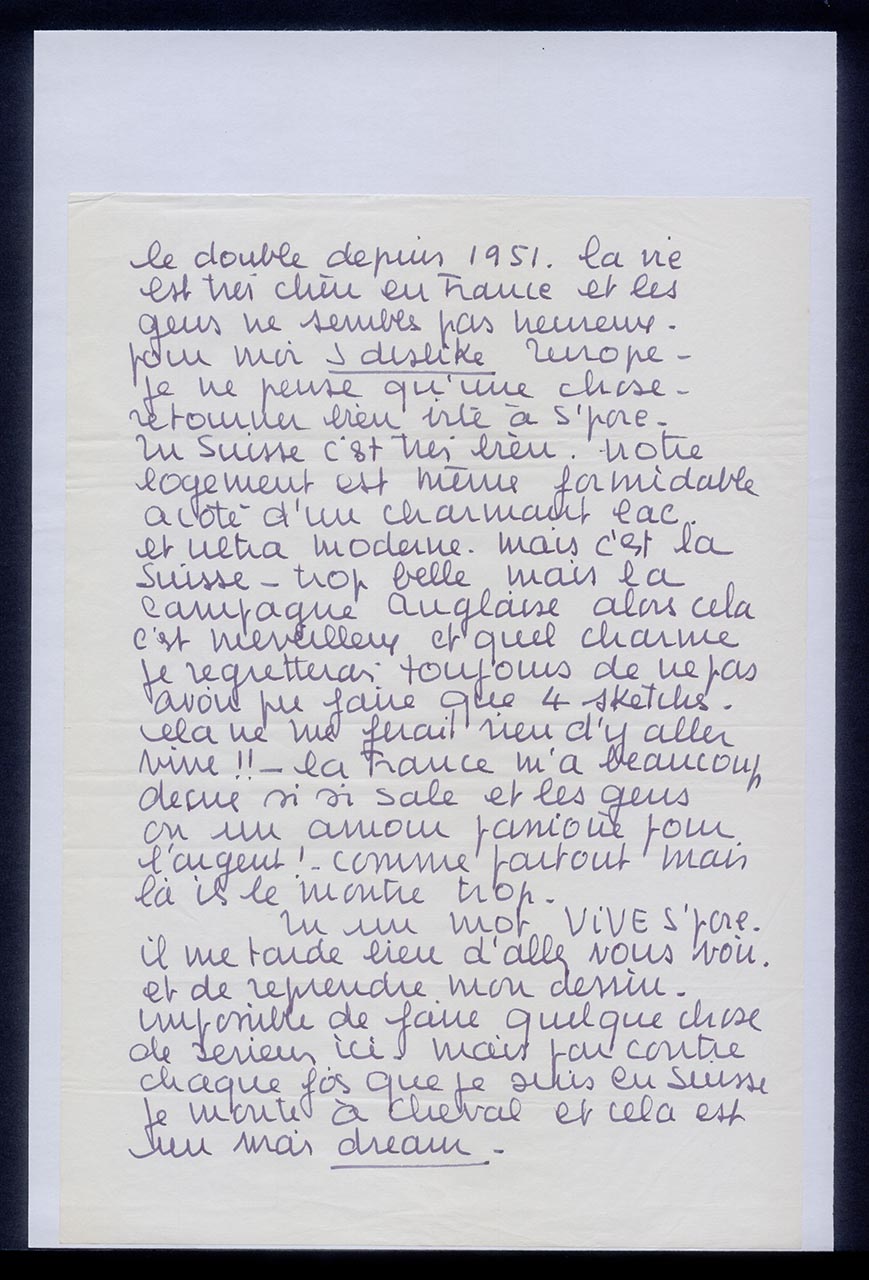 le double depuis 1951. la vie
est très chère en France et les
gens ne sembles pas heureux.
pour moi I dislike l'europe -
je ne pense qu'une chose -
retourner bien vite à S'pore.
En Suisse c'est très bien. notre
logement est même formidable
a coté d'un charmant lac.
et ultra moderne. mais c'est la
Suisse - trop belle mais la
campagne anglaise alors cela
c'est merveilleux et quel charme
je regretterai toujours de ne pas
avoir pu faire que 4 sketchs.
cela ne me ferait rien d'y aller
vivre !! - la France m'a beaucoup
deçue si si sale et les gens
on un amour panique pour
l'argent ! - comme partout mais
là ils le montre trop.
En un mot ViVE S'pore.
il me tarde bien d'aller vous voir.
et de reprendre mon dessin.
impossible de faire quelque chose
de serieux ici. mais par contre
chaque fois que je suis en Suisse
je monte à cheval et cela est
un vrai dream -